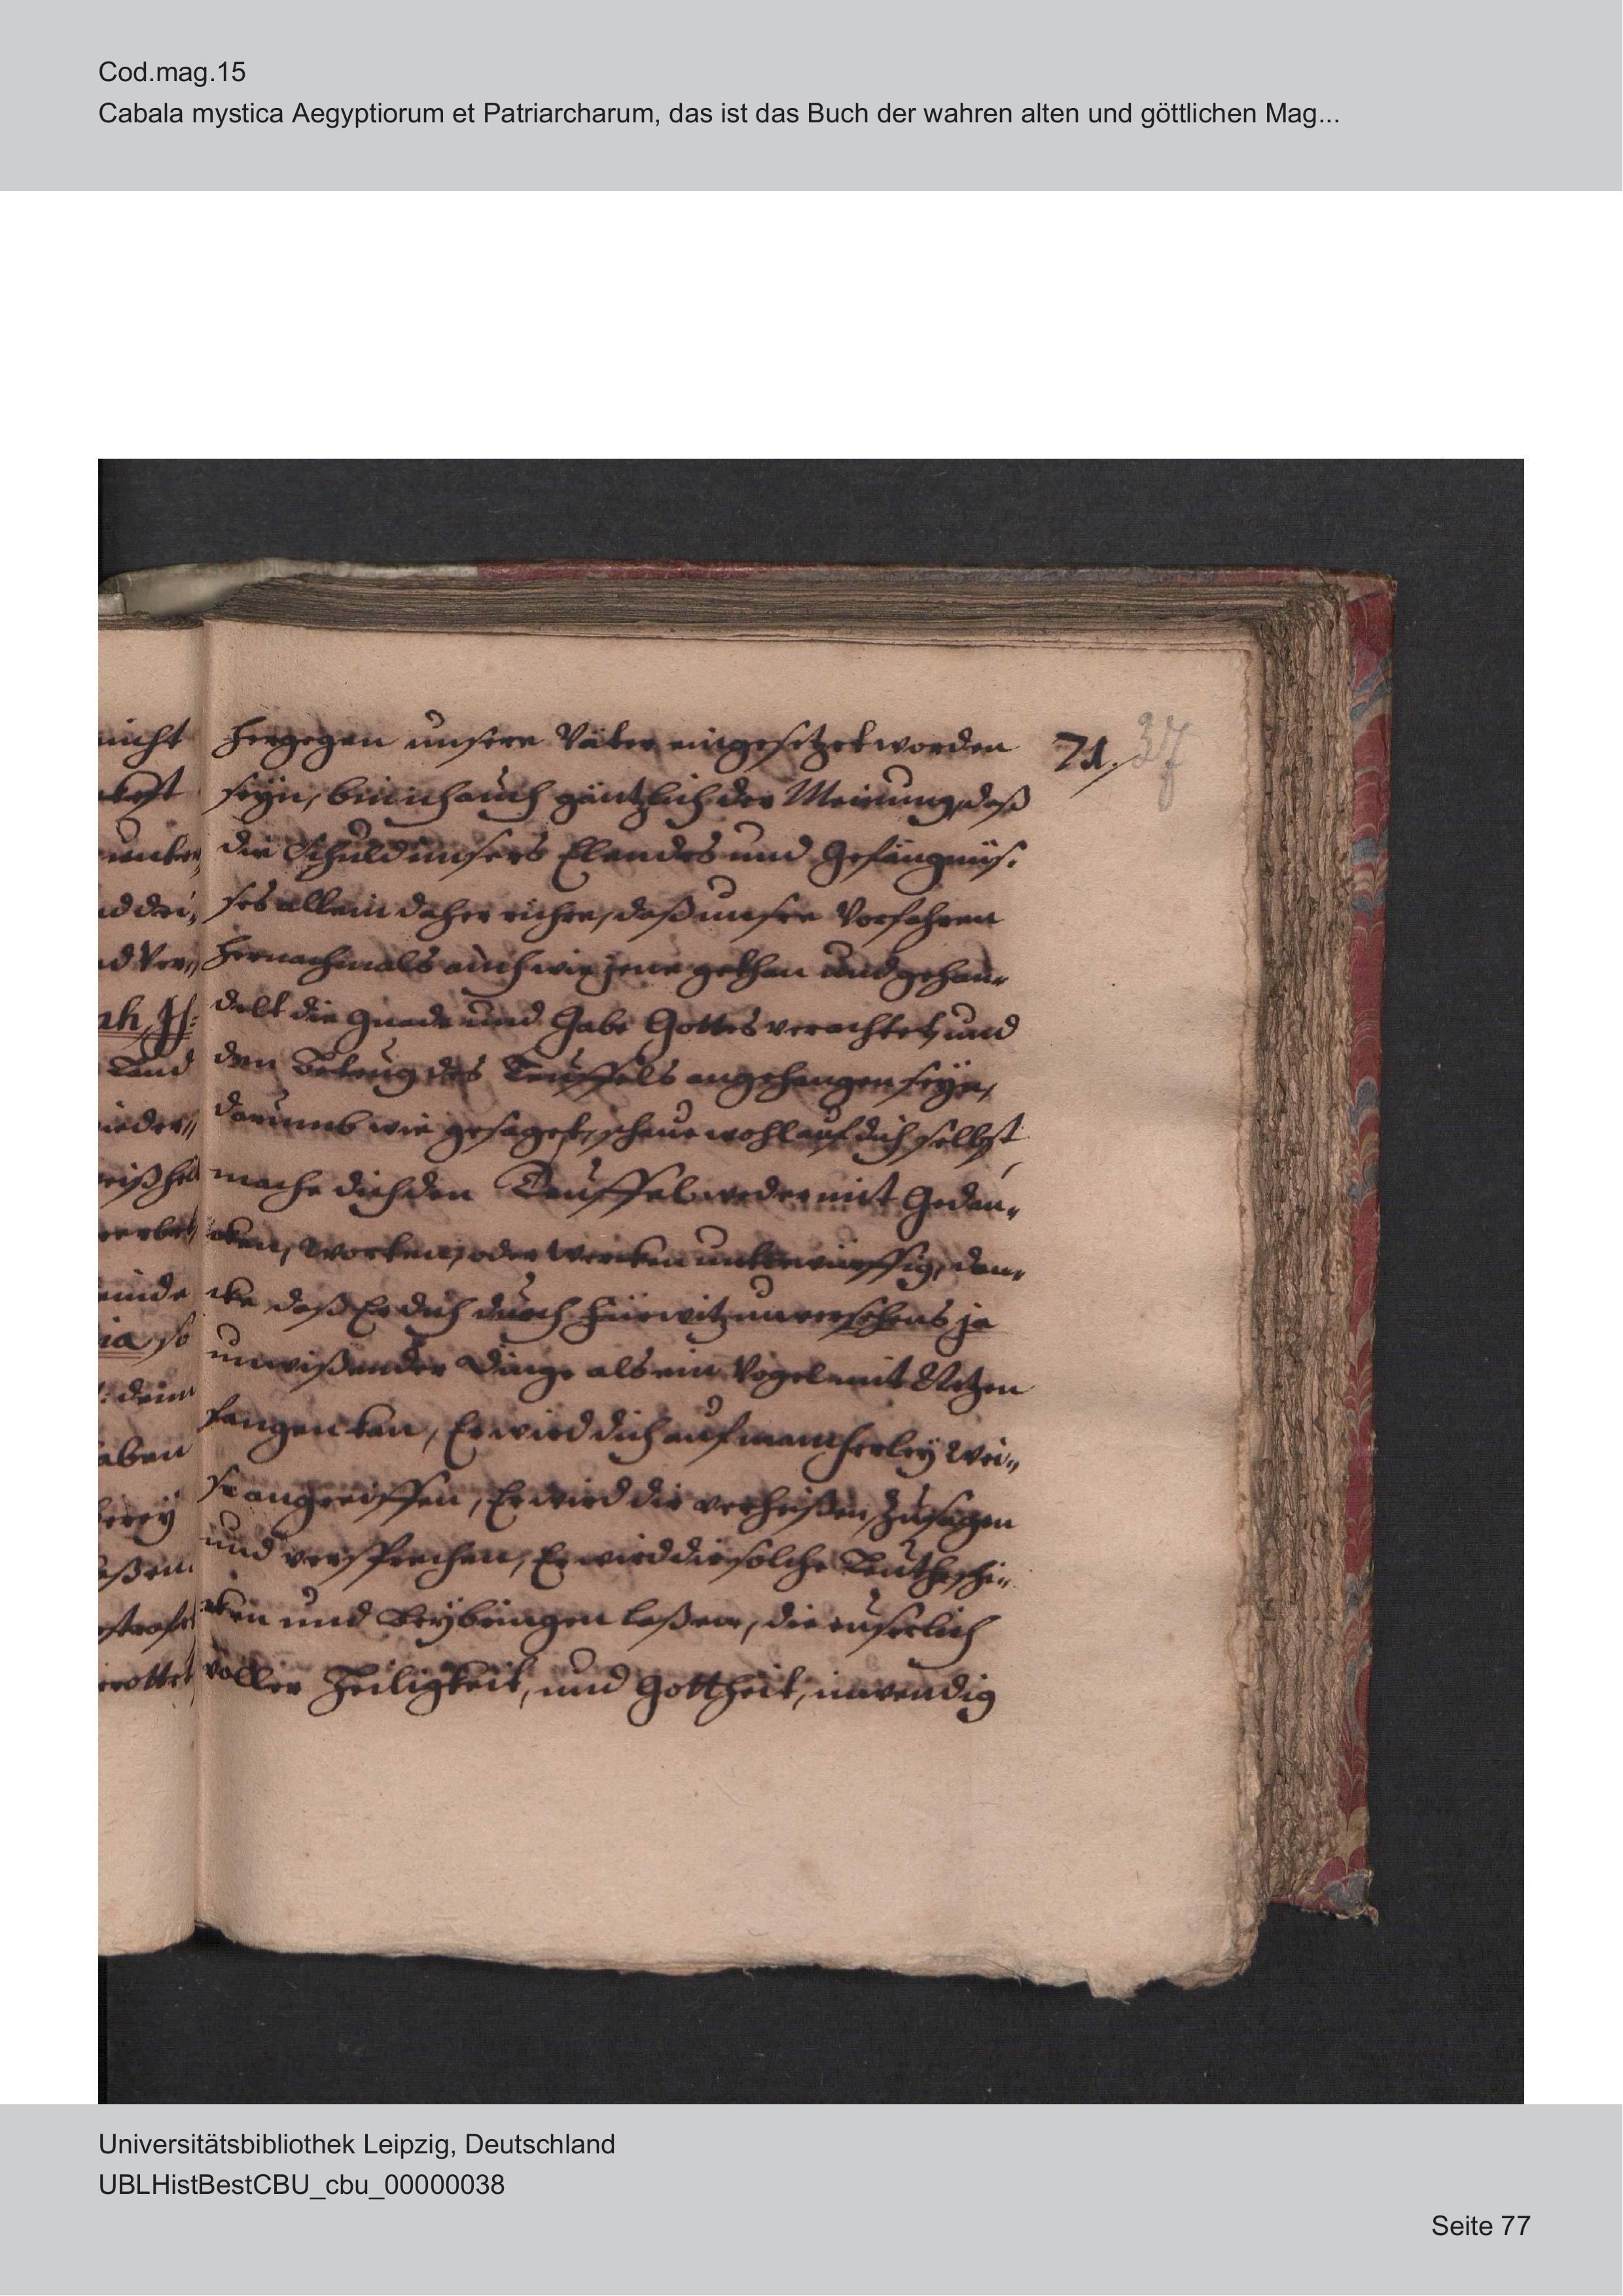 Cod.mag.15
Cabala mystica Aegyptiorum et Patriarcharum, das ist das Buch der wahren alten und göttlichen Mag...
71. 37
hergegen unsere Väter eingesetzet worden
seÿn, bin ich auch gäntzlich der Meinung, daß
die Schuld unsers Elendes und Gefängnüs:
ses allein daher rühre, daß unsre Vorfahren
hernachmals auch wie jene gethan und gehan„
delt die Gnade und Gabe Gottes verachtet, und
den Betrug des Teuffels angehangen seÿn,
darumb wie gesaget, schaue wohl auf dich selbst,
mache dich den Teuffel weder mit Gedan„
cken, Worten, oder Wercken unterwürffig, den„
cke daß Er dich durch fürwitz unversehens ja
unwißender Dinge als ein Vogel mit Netzen
fangen kan, Er wird dich auf mancherleÿ Wei„
se angreiffen, Er wird dir verheißen, Zusagen
und versprechen, Er wird dir solche Leuthe schi„
cken und Beÿbringen laßen, die euserlich
voller Heiligkeit, und Gottheit, inwendig
nicht
Land
aben
Universitätsbibliothek Leipzig, Deutschland
UBLHistBestCBU_cbu_00000038
Seite 77